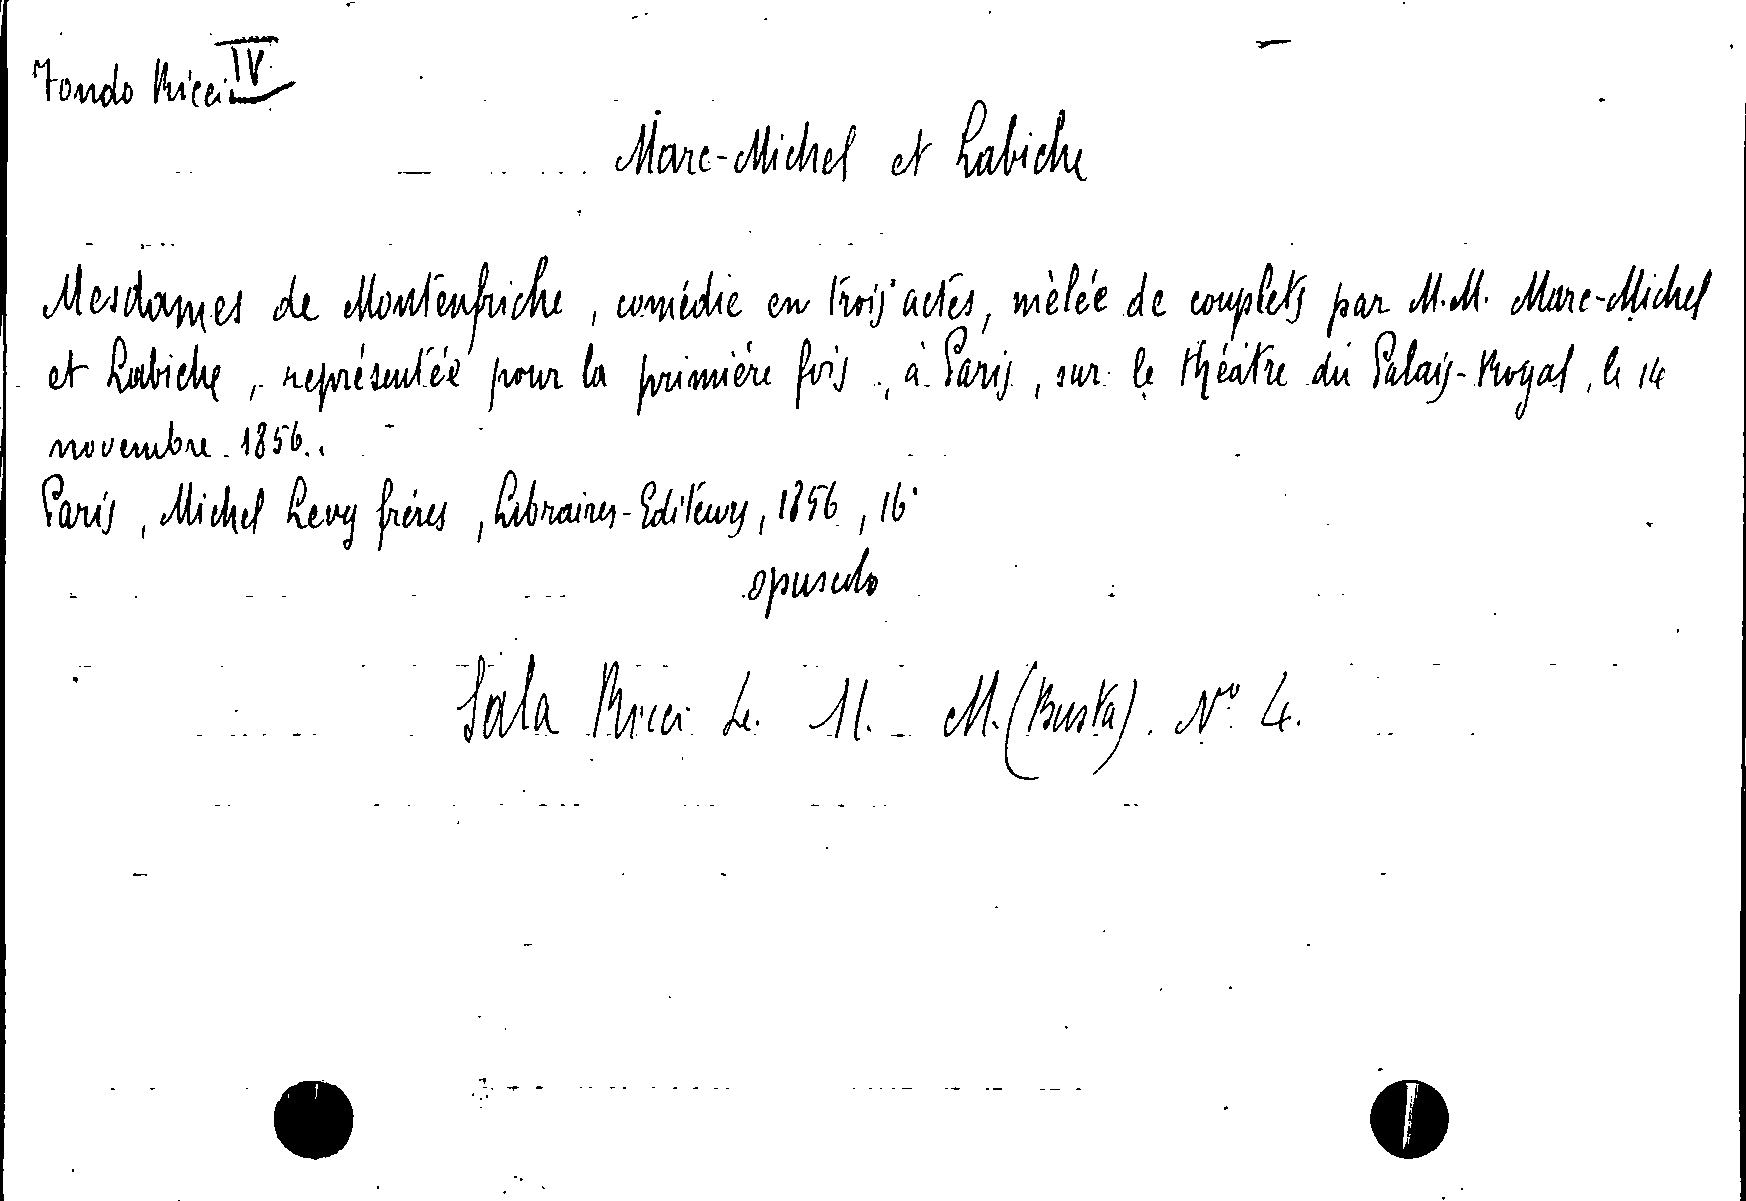 Fondo Ricci IV
Marc-Michel et Labiche
Mesdames de Montenfriche, comédie en trois actes, mèlée de couplets par M.M. Marc-Michel
et Labiche, représentée pour la primiére fois, à Paris, sur le théatre du Palais-Royal, le 14
novembre 1856.
Paris, Michel Levy fréres, Libraires-Editeurs, 1856, 16°
opuscolo
Sala Ricci L. 11. M. (Busta). N° 4.